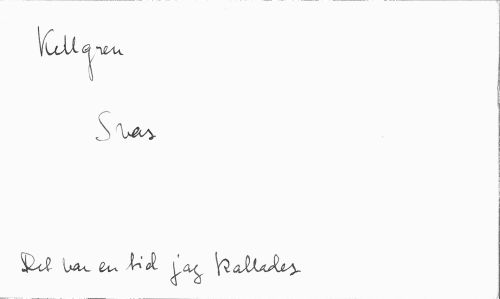 Kellgren
Svar
Det var en tid jag kallades